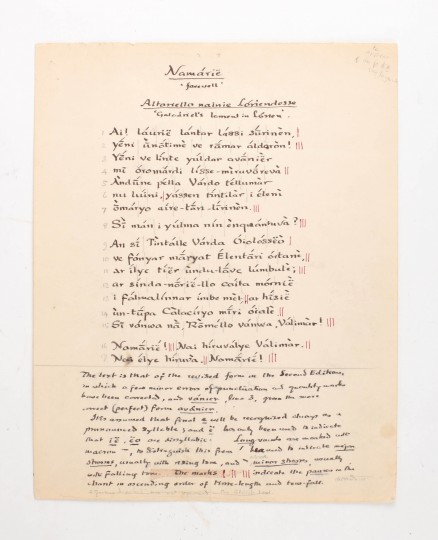 Namárië
'farewell'
Altariello nainie Lóriendesse
'Galadriel's lament in Lórien'.
1 Ai! laurië lantar lassi súrinen, |
2 yéni únótimë ve rámar aldaron! |||
3 Yéni ve lintë yuldar avánier
4 mi oromardi lisse-miruvóreva ||
5 Andúne pella Vardo tellumar
6 nu luini, | yassen tintilar i eleni
7 ómaryo aire-tári-lírinen. |||
8 Sí man i yulma nin enquantuva? |||
9 An sí Tintalle Varda Oiolossëo |
10 ve fanyar máryat Elentári ortanë, ||
11 ar ilye tiër undu-lávë lumbule; |||
12 ar sinda-nóriello caita mornië
13 i falmalinnar imbe met, || ar hísië
14 un-túpa Calaciryo míri oialë ||
15 Sí vanwa ná, | Rómello vanwa, Valimar! |||
16 Namárië! || Nai hiruvalye Valimar. ||
17 Nai elye hiruva. || Namárië! |||
The text is that of the revised form in the Second Edition,
in which a few minor errors of punctuation and quantity marks
have been corrected, and vánier, line 3, given the more
correct (perfect) form avánier.
It is assumed that final e will be recognized always as a
pronounced syllable; and ë has only been used to indicate
that ië, ëo are disyllabic. Long vowels are marked with
macron ¯, to distinguish this from ´ used to indicate major
stresses, usually with rising tone, and ` minor stresses usually
with falling tone. The marks | || ||| indicate the pauses in the
chant in ascending order of time-length and tone-fall.